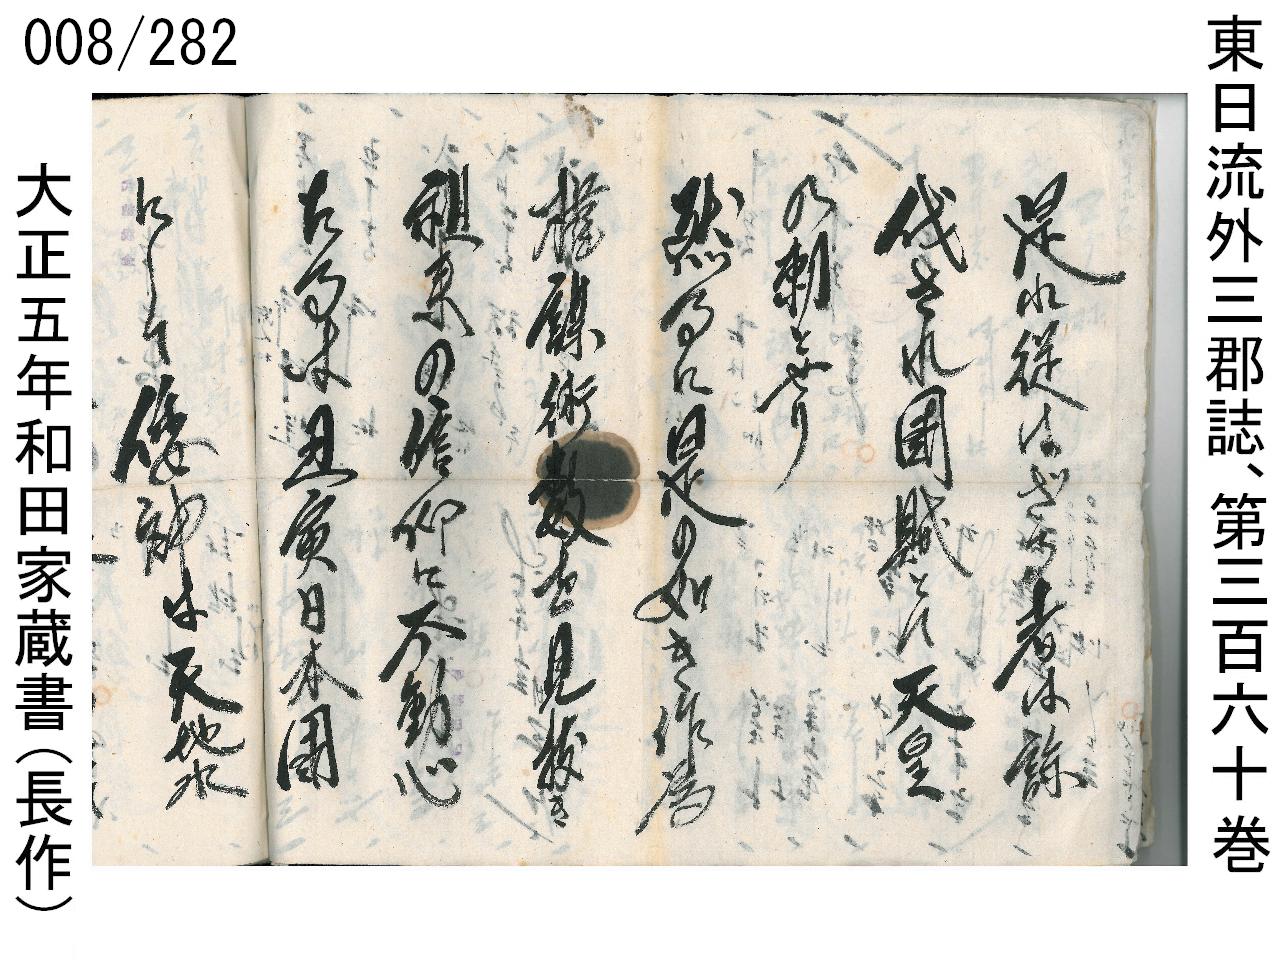 008/282
東日流外三郡誌、第三百六十巻
是れ従はざる者は餘
伐され国賊とし天皇
の勅とせり
然るに是の如き作為
権謀術数を見抜き
祖来の信仰に不動心
たるは丑寅日本国
にして倭神は天地水
大正五年和田家蔵書(長作)